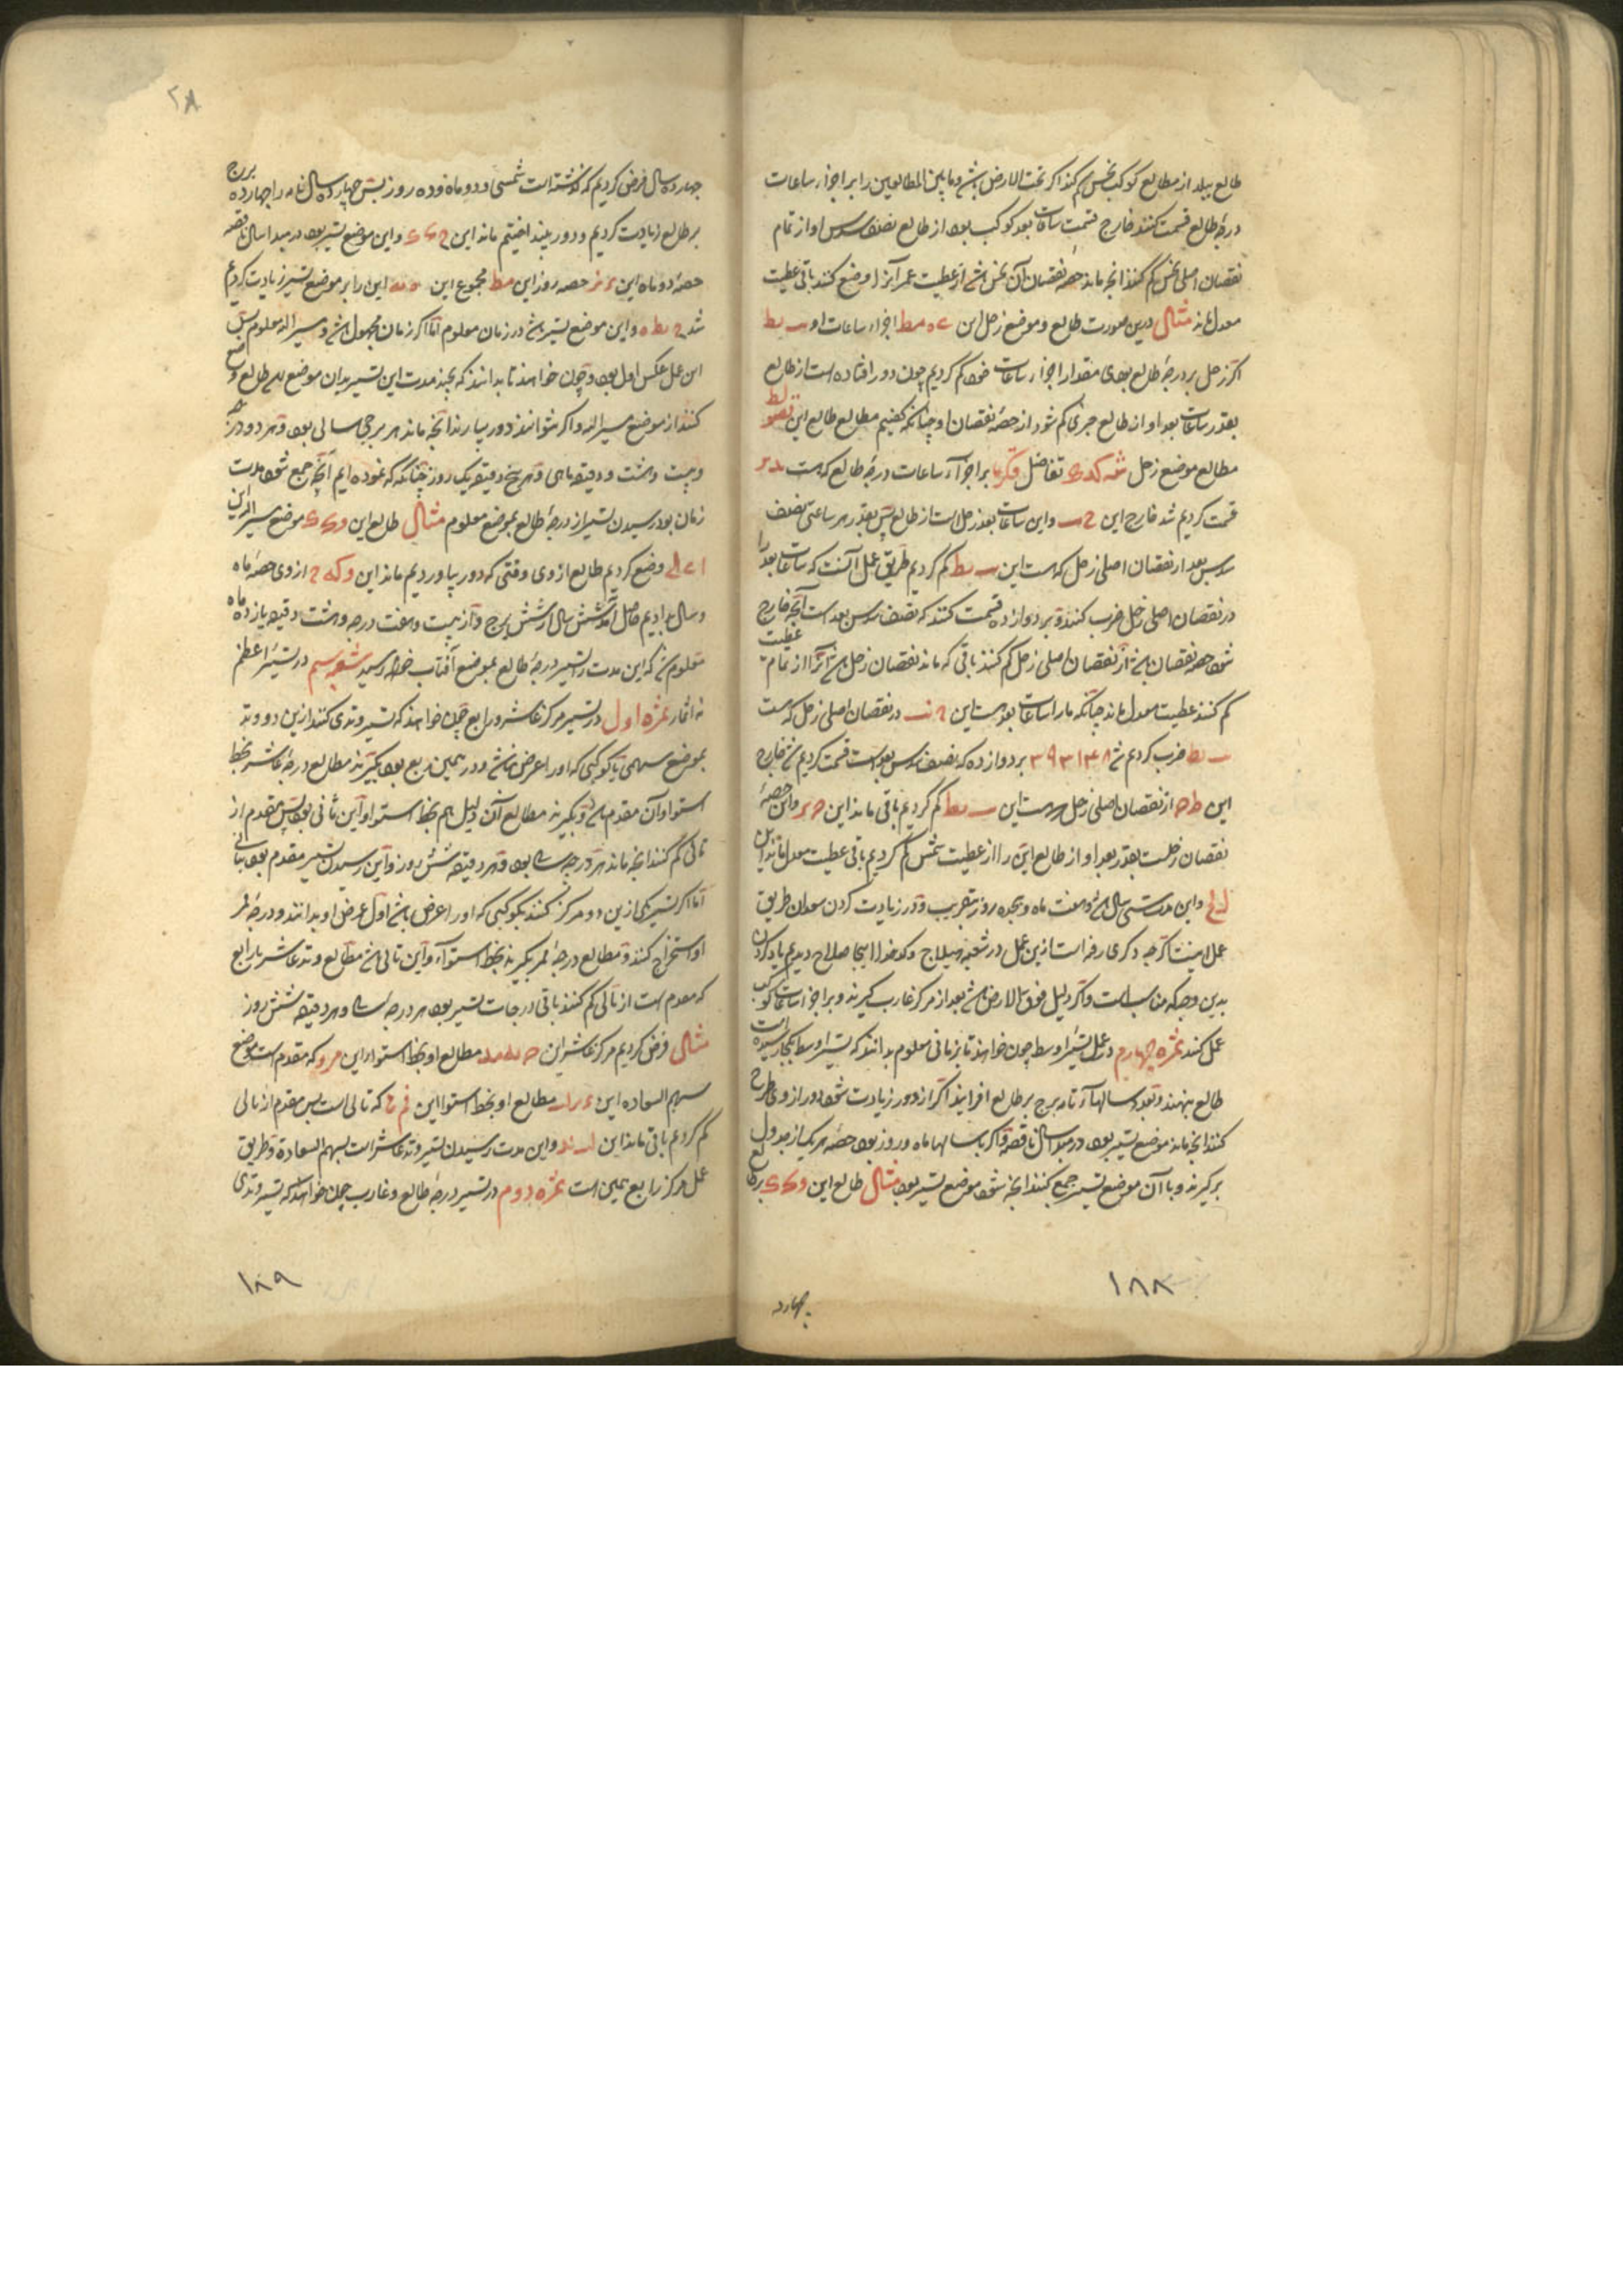 طالع ببلد از مطالع کوکب نحس کم کنند اگر تحت الارض باشد و ما بین المطالعین را بر اجزاء ساعات
درجۀ طالع قسمت کنند خارج قسمت ساعات بعد کوکب بود از طالع نصف سدس او از تمام
نقصان اصلی نحس کم کنند آنچه ماند حصۀ نقصان آن نحس باشد از عطیت عمر آنرا وضع کنند باقی عطیت
معدل ماند مثال درین صورت طالع و موضع زحل این مط اجزاء ساعات او یط
اگر زحل بر درجۀ طالع بودی مقدار اجزاء ساعات خود کم کردیم چون دور افتاده است از طالع
بقدر ساعات بعد او از طالع جزی کم شود از حصۀ نقصان او چنانکه گفتیم مطالع طالع این
مطالع موضع زحل تفاضل بر اجزاء ساعات درجۀ طالع که هست
قسمت کردیم شد خارج این و این ساعات بعد زحل است از طالع پس بقدر هر ساعتی نصف
سدس بعد از نقصان اصلی زحل که هست این یط کم کردیم طریق عمل آنست که ساعات بعد را
در نقصان اصلی زحل ضرب کنند و بر دوازده قسمت کنند که نصف سدس بعد است آنچه خارج
شود حصه نقصان باشد از نقصان اصلی زحل کم کنند باقی که ماند نقصان زحل باشد آنرا از تمام عطیت
کم کنند عطیت معدل ماند چنانکه ما را ساعات بعد هست این در نقصان اصلی زحل که هست
یط ضرب کردیم شد ۳۹۳۱۳۸ بر دوازده که نصف سدس بعد است قسمت کردیم شد خارج
این از نقصان اصلی زحل که هست این یط کم کردیم باقی ماند این و این حصۀ
نقصان زحلست بقدر بعد او از طالع این را از عطیت شمس کم کردیم باقی عطیت معدل ماند این
و این مدت سی سال باشد و هفت ماه و هجده روز بتقریب و در زیادت کردن سعدان طریق
عمل اینست اگرچه ذکری رفته است ازین عمل در شعبه هیلاج و کدخدا اینجا صلاح دیدم یاد کردن
بدین وجه که مناسبست و اگر دلیل فوق الارض باشد بعد از مرکز غارب گیرند و بر اجزا ساعات کوکب
عمل کنند ثمره چهارم در عمل تسییر اوسط چون خواهند تا بزمانی معلوم بدانند که تسییر اوسط بکجا رسیده است
طالع بنهند و بعدد سالهاء تامه برج بر طالع افزایند اگر از دور زیادت شود دور از وی طرح
کنند آنچه ماند موضع تسییر بود در مبدا سال ناقصه و اگر با سالها ماه و روز بود حصۀ هر یک از جدول
برگیرند و با آن موضع تسییر جمع کنند آنچه شود موضع تسییر بود مثال طالع این بر طالع
چهارده
۱۸۸
۲۸
چهارده سال فرض کردیم که گذشته است شمسی و دو ماه و ده روز پس چهارده سال تامه را چهارده برج
بر طالع زیادت کردیم و دور بینداختیم ماند این و این موضع تسییر بود در مبدا سال ناقصه
حصۀ دو ماه این حصه روز این مط مجموع این این را بر موضع تسییر زیادت کردیم
شد و این موضع تسییر باشد در زمان معلوم اما اگر زمان مجهول باشد و مسیر الیه معلوم پس
این عمل عکس اول بود و چون خواهند تا بدانند که بچند مدت این تسییر بدان موضع رسد طالع وضع
کنند از موضع مسیر الیه و اگر نتوانند دور بیارند آنچه ماند هر برجی سالی بود و هر دو درجه
و بیست و هشت دقیقه ماهی و هر پنج دقیقه یک روز چنانکه نموده ایم آنچه جمع شود مدت
زمان بود رسیدن تسییر از درجۀ طالع بموضع معلوم مثال طالع این موضع مسیر الیه این
وضع کردیم طالع از وی وقتی که دور بیاوردیم ماند این از وی حصۀ ماه
و سال بدادیم حاصل آمد شش سال از شش برج و از بیست و هفت درجه و هشت دقیقه یازده ماه
معلوم شد که این مدت را تسییر درجۀ طالع بموضع آفتاب خواهد رسید شعبه سیم در تسییر اعظم
نه اثمار ثمره اول در تسییر مرکز عاشر و رابع چون خواهند که تسییر وتدی کنند ازین دو وتد
بموضع سهمی یا کوکبی که او را عرض نباشد و در همین ربع بود بگیرند مطالع درجۀ عاشر بخط
استوا و آن مقدم باشد و بگیرند مطالع آن دلیل هم بخط استوا و این ثانی بود پس مقدم از
تالی کم کنند آنچه ماند هر درجه سالی بود و هر دقیقه شش روز و این رسیدن تسییر مقدم بود بتالی
اما اگر تسییر یکی ازین دو مرکز کنند بکوکبی که او را عرض باشد اول عرض او بدانند و درجۀ ممر
او استخراج کنند و مطالع درجۀ ممر بگیرند بخط استواء و این تالی باشد مطالع وتد عاشر یا رابع
که مقدم است از تالی کم کنند باقی درجات تسییر بود هر درجه سالی و هر دقیقه شش روز
مثال فرض کردیم مرکز عاشر این مطالع او بخط استوا این که مقدم است و موضع
سهم السعاده این مطالع او بخط استوا این که تالی است پس مقدم از تالی
کم کردیم باقی ماند این و این مدت رسیدن تسییر وتد عاشر است بسهم السعادة و طریق
عمل مرکز رابع همین است ثمره دوم در تسییر درجۀ طالع و غارب چون خواهند که تسییر وتدی
۱۸۹